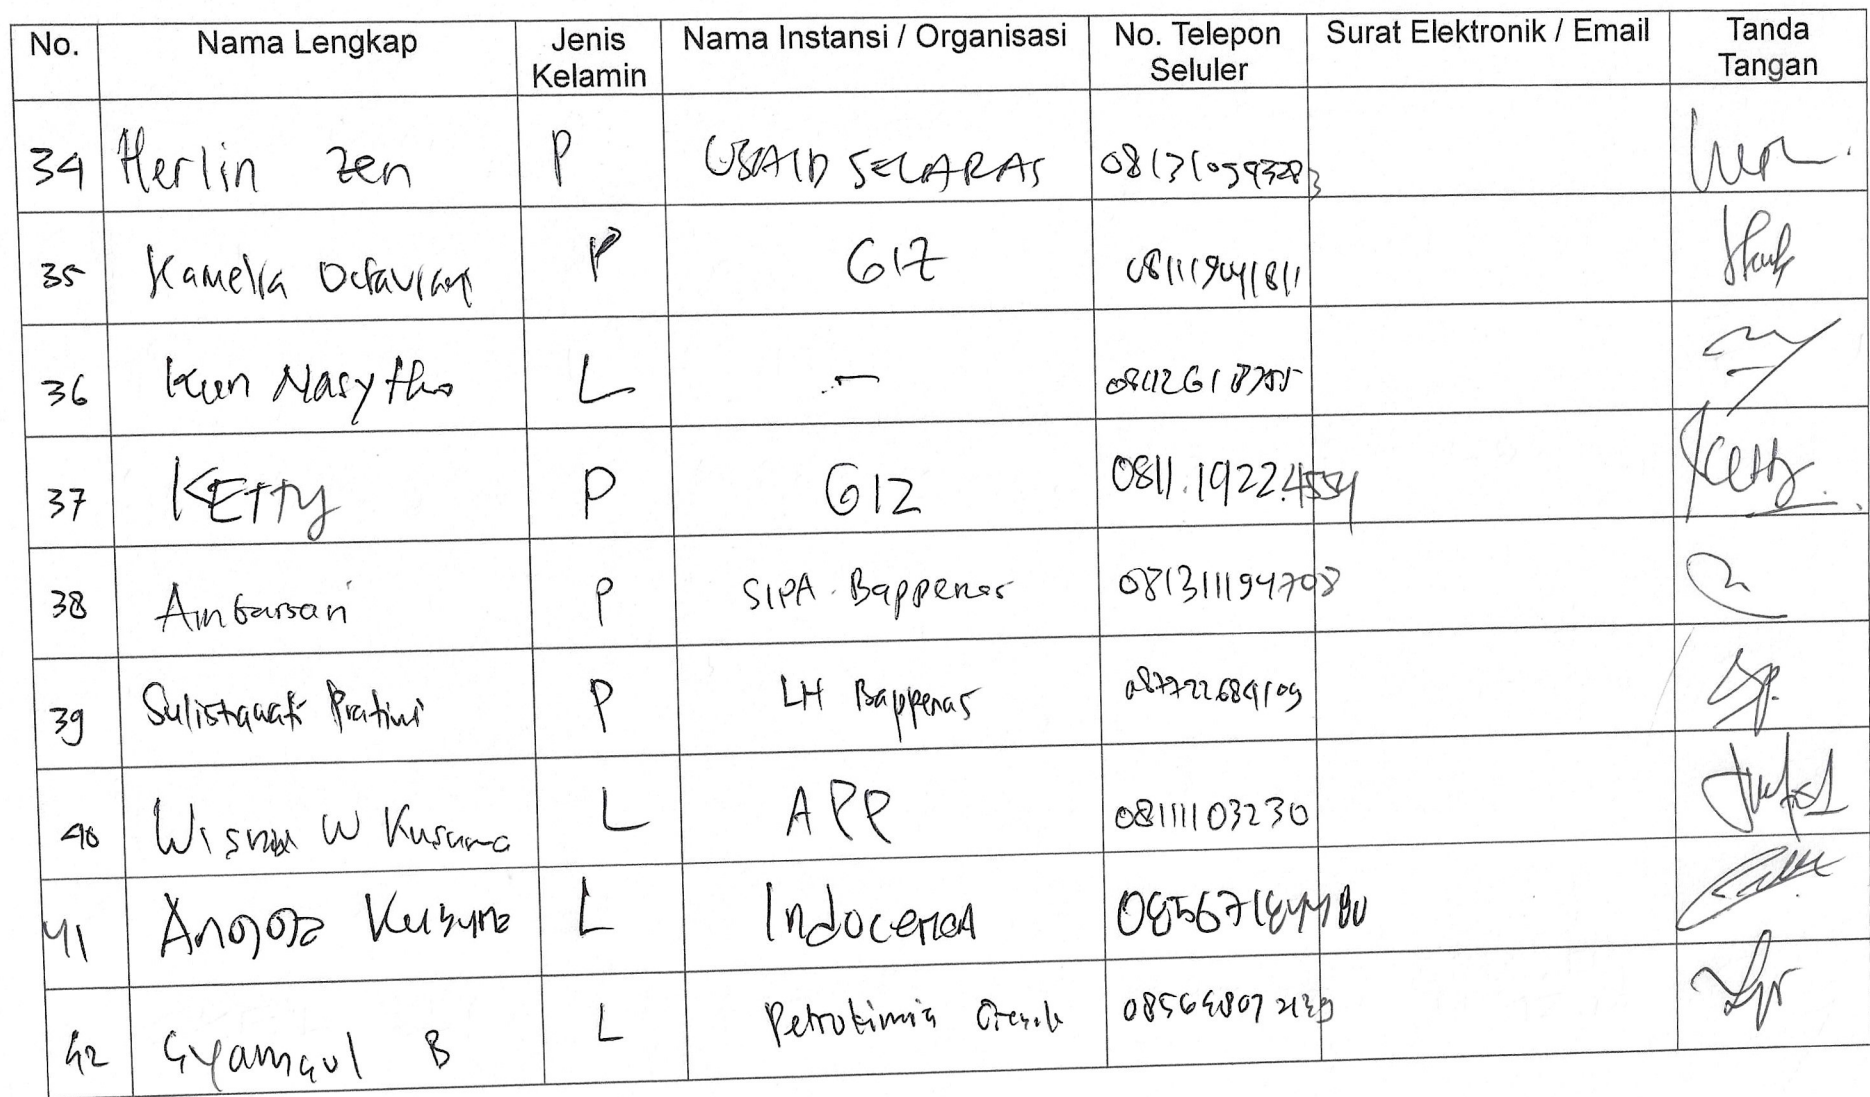 No. Nama Lengkap Jenis Kelamin Nama Instansi / Organisasi No. Telepon Seluler Surat Elektronik / Email Tanda Tangan
34 Herlin Zen P USAID SELARAS
35 Kamelia Octaviani P GIZ
36 Kun Nasython L -
37 KETTY P GIZ 0811.1922.4554 Ketty
38 Ambarsari P SIPA. Bappenas 081311194708
39 Sulistiawati Pratiwi P LH Bappenas 087722684109
40 Wisnu W Kusuma L APP 08111103230
41 Angga Kusuma L Indocement
42 Syamsul B L Petrokimia Gresik